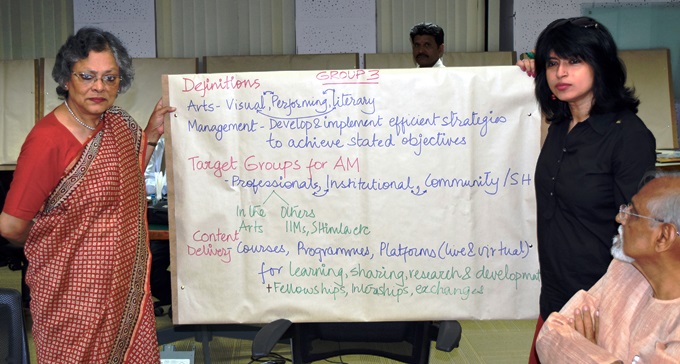 GROUP 3
Definitions
Arts - Visual, Performing, Literary
Management - Develop & implement efficient strategies
to achieve stated objectives
Target Groups for AM
- Professionals, Institutional, Community / SH
In the Others
Arts IIMs, SHimla etc
Content
Delivery Courses, Programmes, Platforms (live & virtual)
for learning, sharing, research & development
+ Fellowships, Internships, exchanges